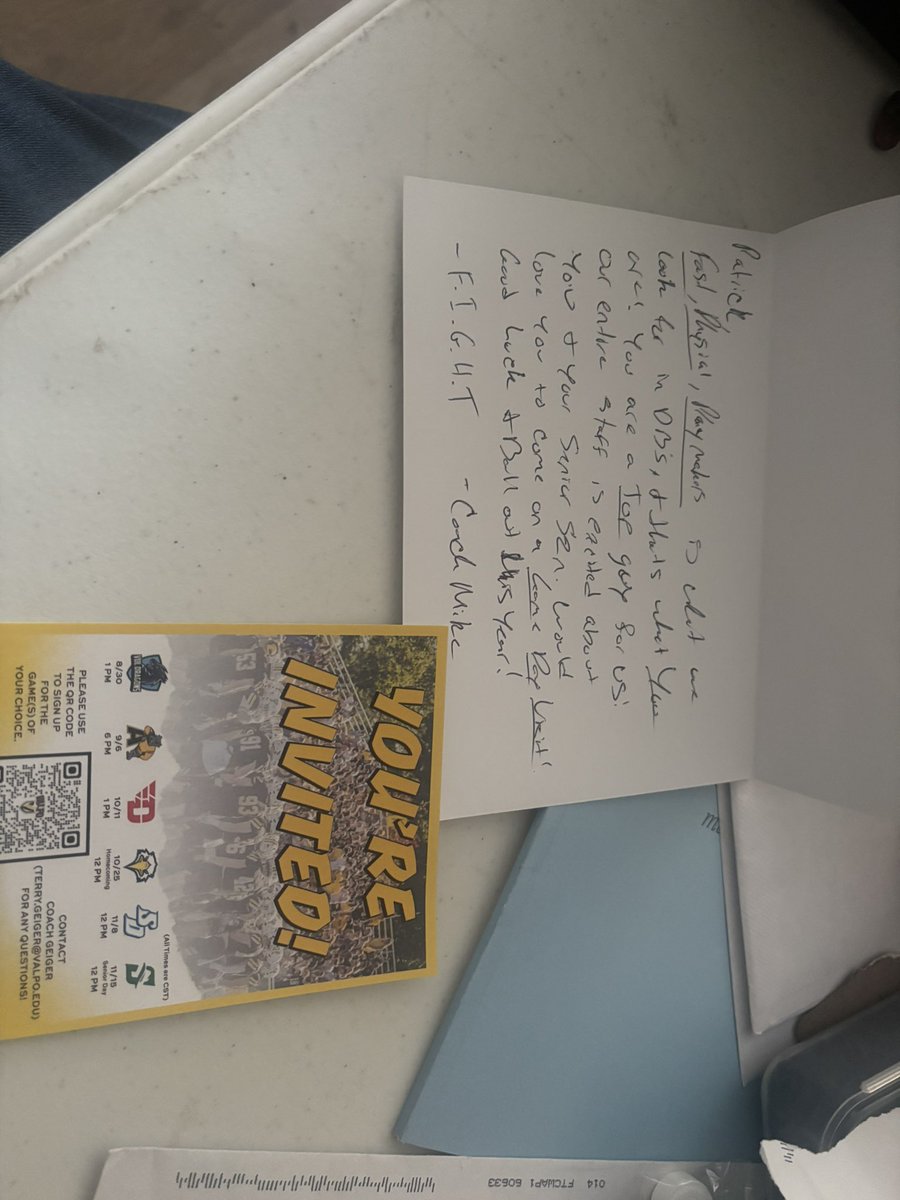 Patrick,
Fast, Physical, Playmakers is what we
look for in DB's, + thats what You
are! You are a Top guy for us!
our entire staff is excited about
You + Your Senior SZN. Would
love You to come on a Game Day Visit!
Good Luck + Ball out this Year!
- F.I.G.H.T - Coach Mike
YOU'RE
INVITED!
(All Times are CST)
8/30
1 PM
9/6
6 PM
10/11
1 PM
10/25
Homecoming
12 PM
11/8
12 PM
11/15
Senior Day
12 PM
PLEASE USE
THE QR CODE
TO SIGN UP
FOR THE
GAME(S) OF
YOUR CHOICE.
CONTACT
COACH GEIGER
(TERRY.GEIGER@VALPO.EDU)
FOR ANY QUESTIONS!
014 FTCWAP1 60633